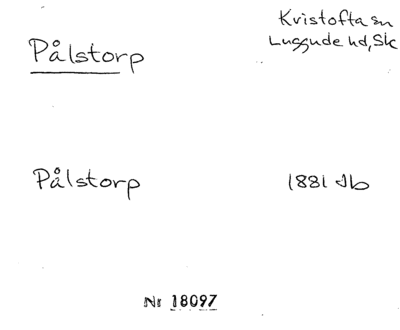 Kristofta sn
Luggude hd, Sk
Pålstorp
Pålstorp 1881 Jb
Nr 18097